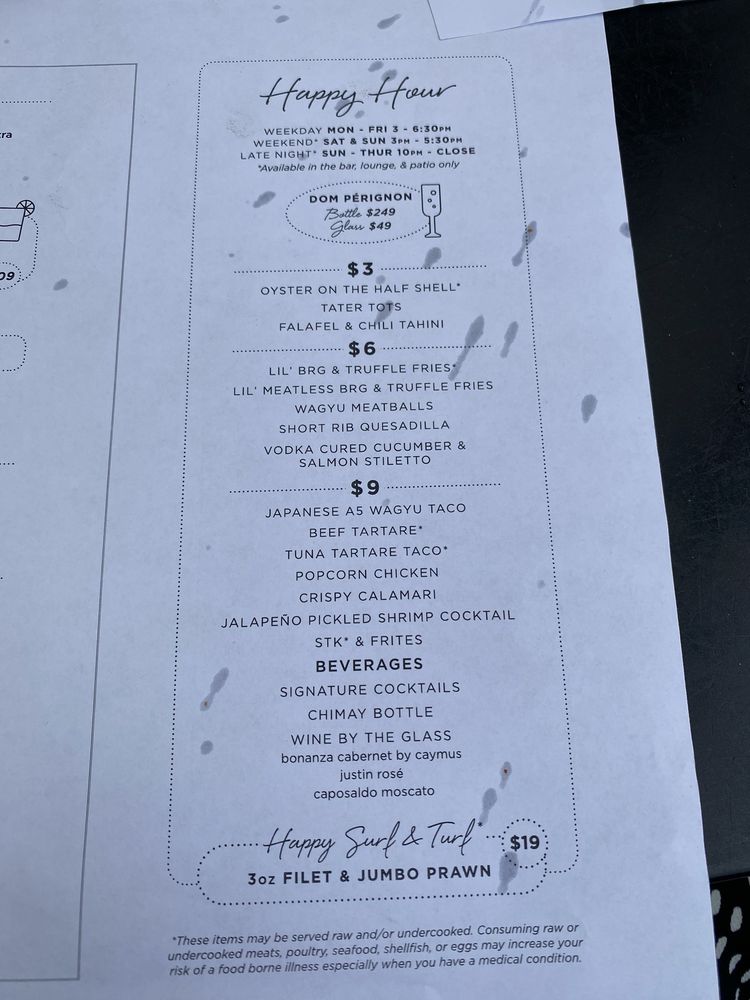 ra
09
Happy Hour
WEEKDAY MON - FRI 3 - 6:30PM
WEEKEND* SAT & SUN 3PM - 5:30PM
LATE NIGHT* SUN - THUR 10PM - CLOSE
*Available in the bar, lounge, & patio only
DOM PÉRIGNON
Bottle $249
Glass $49
$3
OYSTER ON THE HALF SHELL*
TATER TOTS
FALAFEL & CHILI TAHINI
$6
LIL' BRG & TRUFFLE FRIES*
LIL' MEATLESS BRG & TRUFFLE FRIES
WAGYU MEATBALLS
SHORT RIB QUESADILLA
VODKA CURED CUCUMBER &
SALMON STILETTO
$9
JAPANESE A5 WAGYU TACO
BEEF TARTARE*
TUNA TARTARE TACO*
POPCORN CHICKEN
CRISPY CALAMARI
JALAPEÑO PICKLED SHRIMP COCKTAIL
STK* & FRITES
BEVERAGES
SIGNATURE COCKTAILS
CHIMAY BOTTLE
WINE BY THE GLASS
bonanza cabernet by caymus
justin rosé
caposaldo moscato
Happy Surf & Turf* $19
3oz FILET & JUMBO PRAWN
*These items may be served raw and/or undercooked. Consuming raw or
undercooked meats, poultry, seafood, shellfish, or eggs may increase your
risk of a food borne illness especially when you have a medical condition.